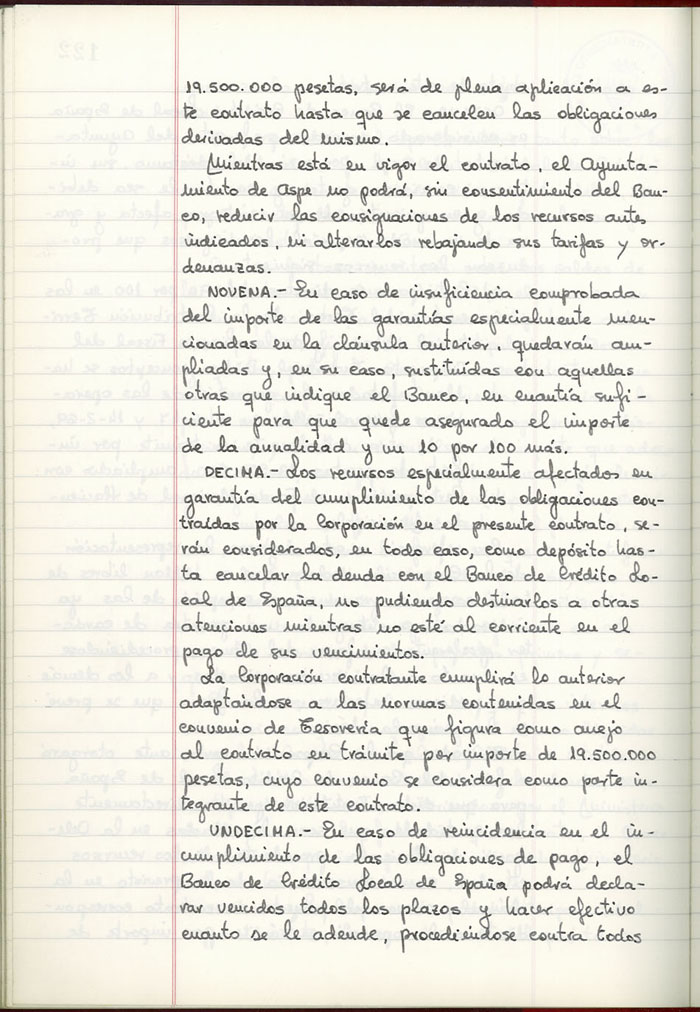 19.500.000 pesetas, será de plena aplicación a es-
te contrato hasta que se cancelen las obligaciones
derivadas del mismo.
Mientras está en vigor el contrato, el Ayunta-
miento de Aspe no podrá, sin consentimiento del Ban-
co, reducir las consignaciones de los recursos antes
indicados, ni alterarlos rebajando sus tarifas y or-
denanzas.
NOVENA.- En caso de insuficiencia comprobada
del importe de las garantías especialmente men-
cionadas en la cláusula anterior, quedarán am-
pliadas y, en su caso, sustituídas con aquellas
otras que indique el Banco, en cuantía sufi-
ciente para que quede asegurado el importe
de la annalidad y un 10 por 100 más.
DECIMA.- Los recursos especialmente afectados en
garantía del cumplimiento de las obligaciones con-
traídas por la Corporación en el presente contrato, se-
rán considerados, en todo caso, como depósito has-
ta cancelar la deuda con el Banco de Crédito Lo-
cal de España, no pudiendo destinarlos a otras
atenciones mientras no esté al corriente en el
pago de sus vencimientos.
La Corporación contratante cumplirá lo anterior
adaptándose a las normas contenidas en el
convenio de Tesorería que figura como anejo
al contrato en trámite por importe de 19.500.000
pesetas, cuyo convenio se considera como parte in-
tegrante de este contrato.
UNDECIMA.- En caso de reincidencia en el in-
cumplimiento de las obligaciones de pago, el
Banco de Crédito Local de España podrá decla-
rar vencidos todos los plazos y hacer efectivo
cuanto se le adeude, procediéndose contra todos